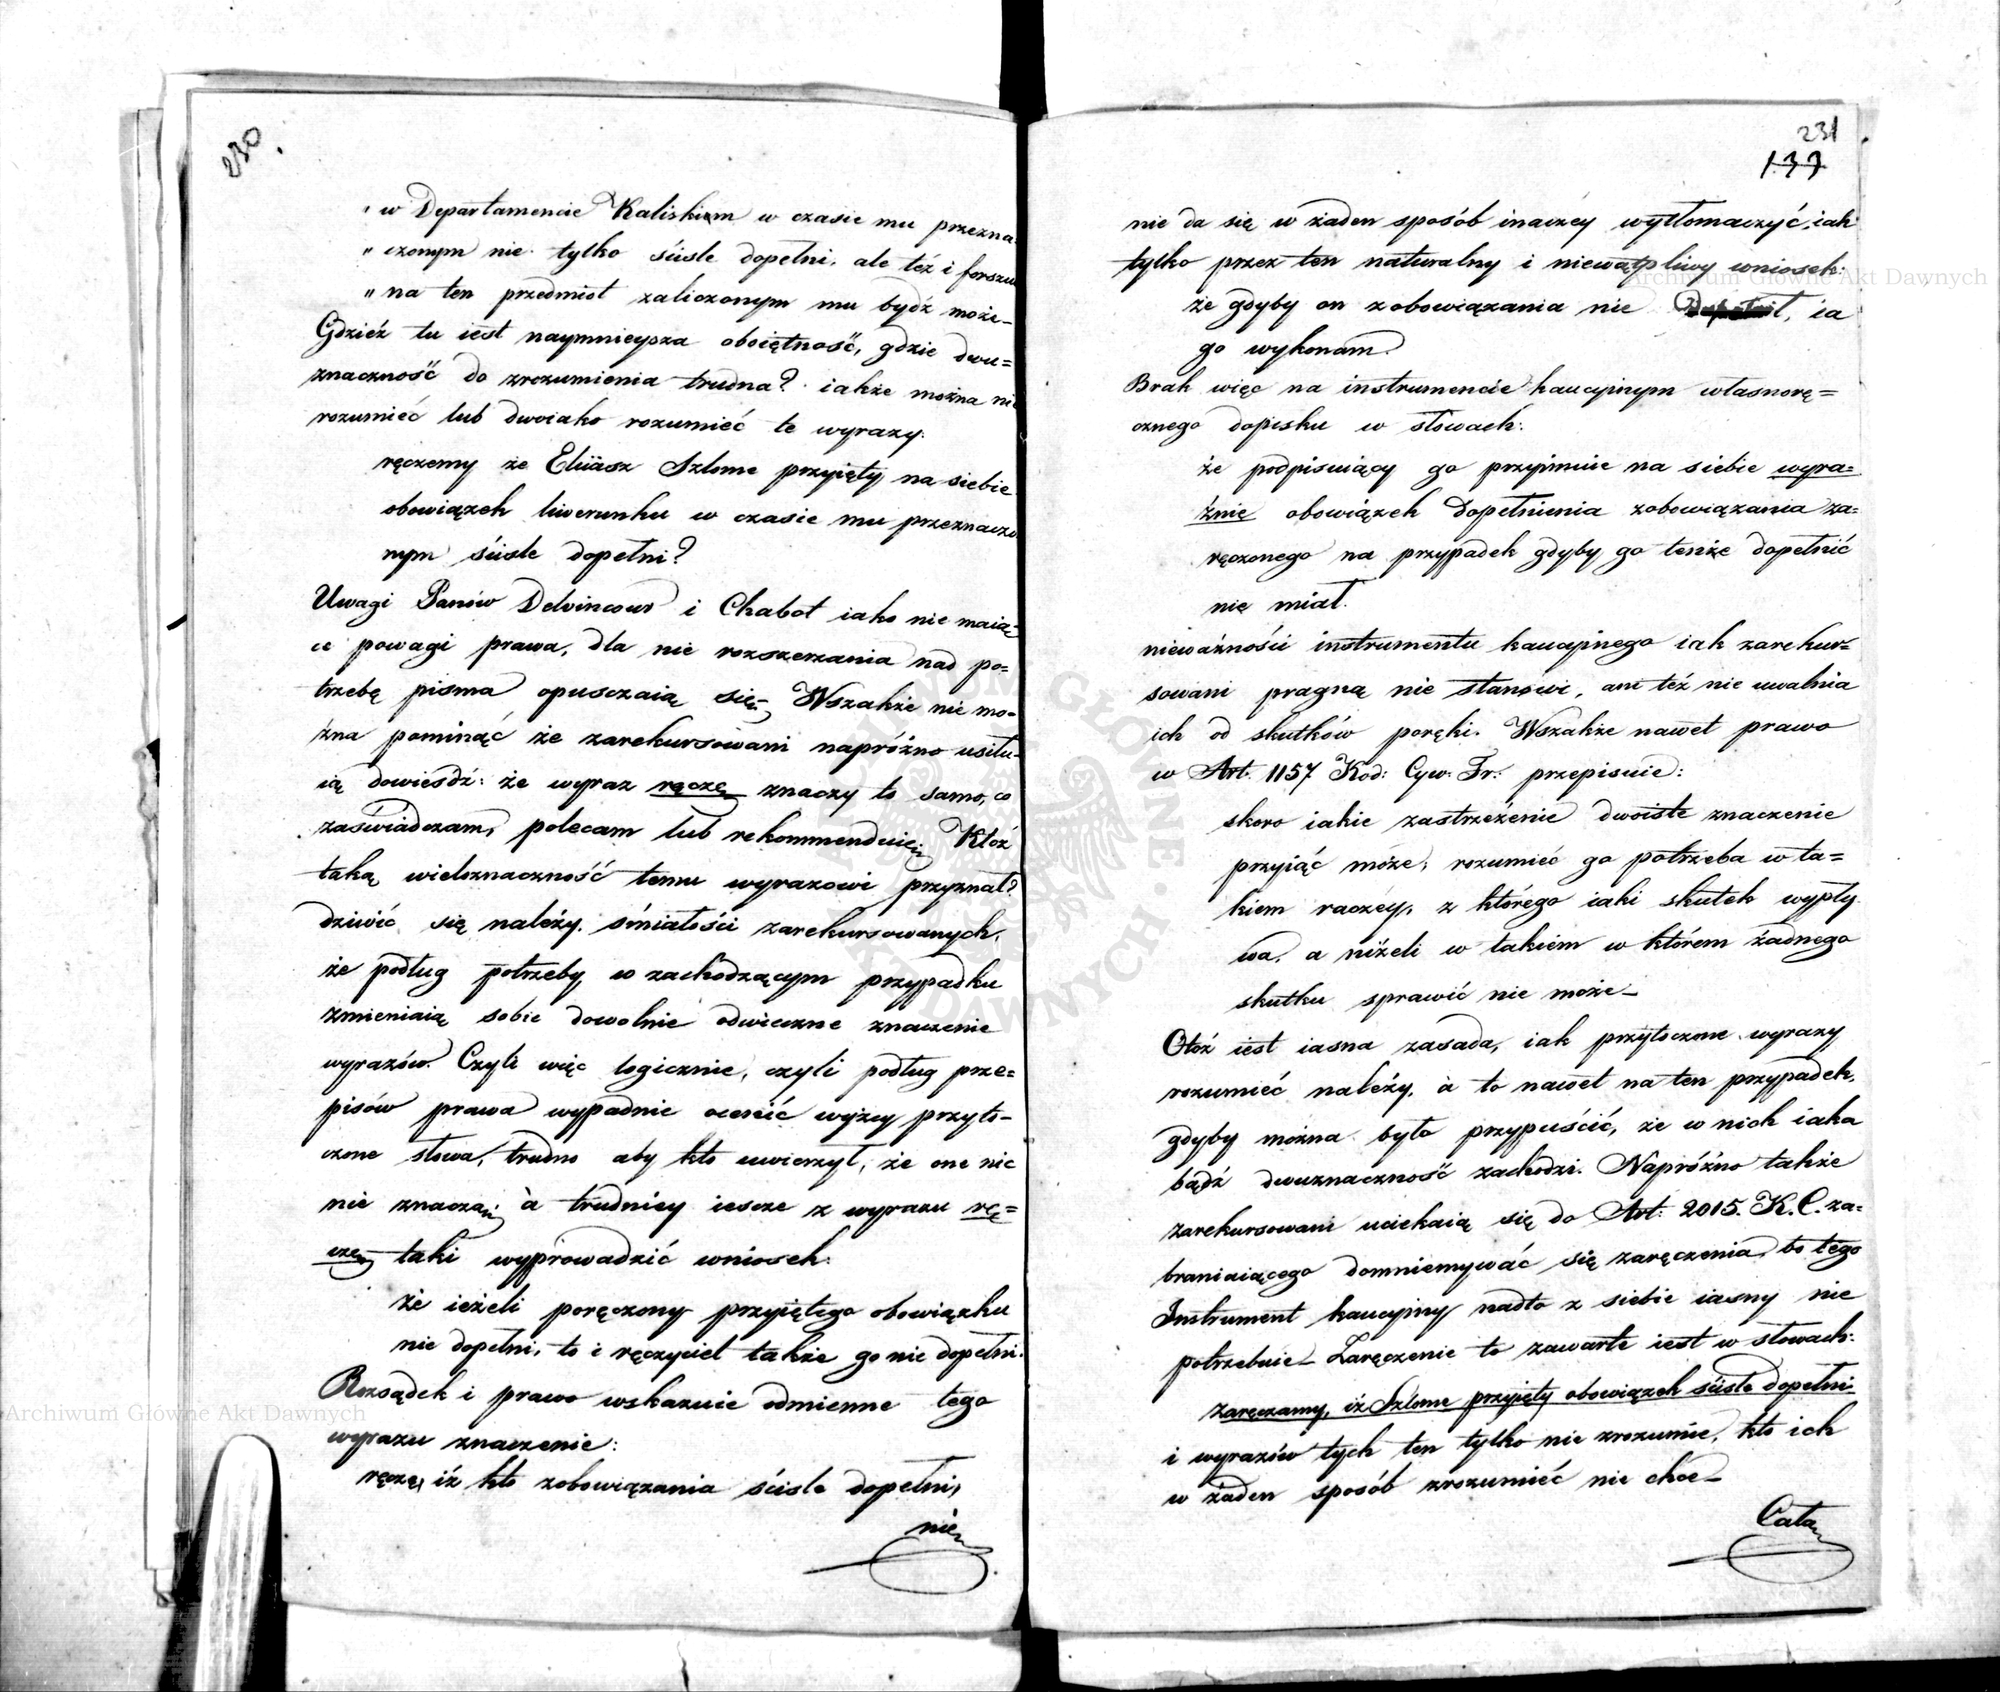 230.
„ w Departamencie Kaliskiem w czasie mu przezna
„ czonym nie tylko ściśle dopełni, ale też i forszus
„ na ten przedmiot zaliczonym mu bydź może_
Gdzież tu iest naymnieysza oboiętność, gdzie dwu=
znaczność do zrozumienia trudna? iakże można nie
rozumieć lub dwoiako rozumieć te wyrazy:
ręczemy że Eliiasz Szlome przyięty na siebie
obowiązek liwerunku w czasie mu przeznaczo
nym ściśle dopełni?
Uwagi Panów Delvincour i Chabot iako nie maią=
ce powagi prawa, dla nie rozszerzania nad po=
trzebę pisma opusczaią się. Wszakże nie mo=
żna pominąć że zarekursowani napróżno usiłu=
ią dowieśdź: że wyraz ręczę znaczy to samo, co
zaświadczam, polecam lub rekommenduię. Któż
taką wieloznaczność temu wyrazowi przyznał?
dziwić się należy śmiałości zarekursowanych,
że podług potrzeby w zachodzącym przypadku
zmieniaią sobie dowolnie odwieczne znaczenie
wyrazów. Czyli więc logicznie, czyli podług prze=
pisów prawa wypadnie ocenić wyżey przyto=
czone słowa, trudno aby kto uwierzył, że one nic
nie znaczą, à trudniey iescze z wyrazu rę=
czę taki wyprowadzić wniosek:
że ieżeli poręczony przyiętego obowiązku
nie dopełni, to i ręczyciel także go nie dopełni.
Rozsądek i prawo wskazuie odmienne tego
wyrazu znaczenie:
ręczę, iż kto zobowiązania ściśle dopełni,
nie
231
133
nie da się w żaden sposób inaczéy wytłomaczyć, iak
tylko przez ten naturalny i niewątpliwy wniosek:
że gdyby on zobowiązania nie dopełnił, ia
go wykonam.
Brak więc na instrumencie kaucyinym własnorę=
cznego dopisku w słowach:
że podpisuiący go przyimuie na siebie wyra=
źnie obowiązek dopełnienia zobowiązania za=
ręczonego na przypadek gdyby go tenże dopełnić
nie miał.
nieważności instrumentu kaucyinego iak zarekur=
sowani pragną nie stanowi, ani też nie uwalnia
ich od skutków poręki. Wszakże nawet prawo
w Art. 1157 Kod: Cyw. Fr: przepisuie:
skoro iakie zastrzeżenie dwoiste znaczenie
przyiąć może, rozumieć go potrzeba w ta=
kiem raczéy, z którego iaki skutek wypły
wa, a niżeli w takiem w którem żadnego
skutku sprawić nie może_
Otóż iest iasna zasada, iak przytoczone wyrazy
rozumieć należy, à to nawet na ten przypadek,
gdyby można było przypuścić, że w nich iaka
bądź dwuznaczność zachodzi. Napróżno także
zarekursowani uciekaią się do Art: 2015. K. C. za=
braniaiącego domniemywać się zaręczenia, bo tego
Instrument kaucyiny nadto z siebie iasny nie
potrzebuie_ Zaręczenie to zawarte iest w słowach:
zaręczamy, iż Szlome przyięty obowiązek ściśle dopełni
i wyrazów tych ten tylko nie zrozumie, kto ich
w żaden sposób zrozumieć nie chce_
Cała
Archiwum Główne Akt Dawnych
Archiwum Główne Akt Dawnych